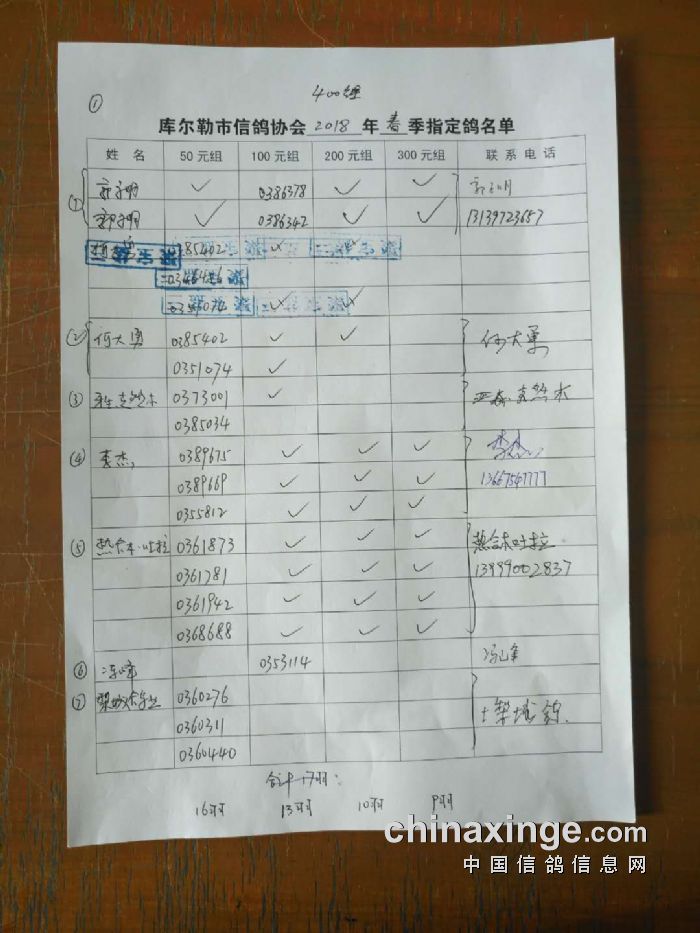 ①
400公里
库尔勒市信鸽协会 2018 年 春 季指定鸽名单
姓 名 50元组 100元组 200元组 300元组 联系电话
① ✓ 0386378 ✓ ✓
✓ 0386342 ✓ ✓ 13139723657
0385402 ✓
✓
② 何大勇 0385402 ✓ ✓ 何大勇
0351074 ✓
③ 0373001 ✓
0385034
④ 李杰 0389675 ✓ ✓ ✓ 李杰
0389669 ✓ ✓ ✓
0355812 ✓ ✓ ✓
⑤ 热合木·吐拉 0361873 ✓ ✓ ✓ 热合木吐拉
0361781 ✓ ✓ ✓ 13999002837
0361942 ✓ ✓ ✓
0368688 ✓ ✓ ✓
⑥ 0353114
⑦ 0360276
0360311
0360440
合计17羽:
16羽 13羽 10羽 9羽
chinaxinge.com
中国信鸽信息网